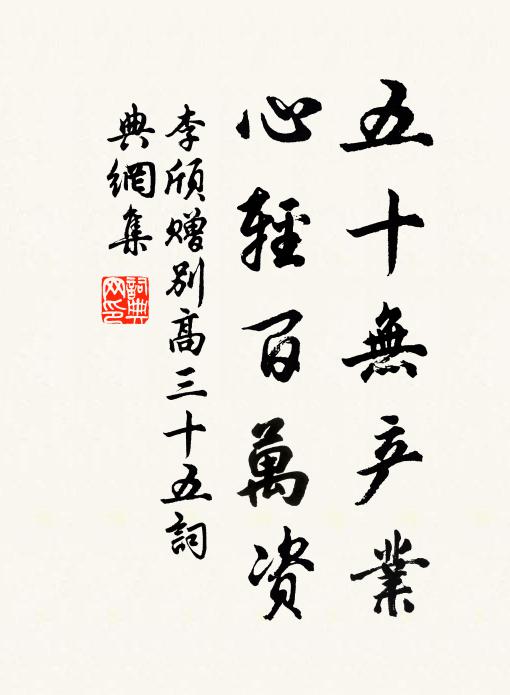 五十無产業
心輕百萬资
李頎贈别高三十五詞
典網集
詞典
网印